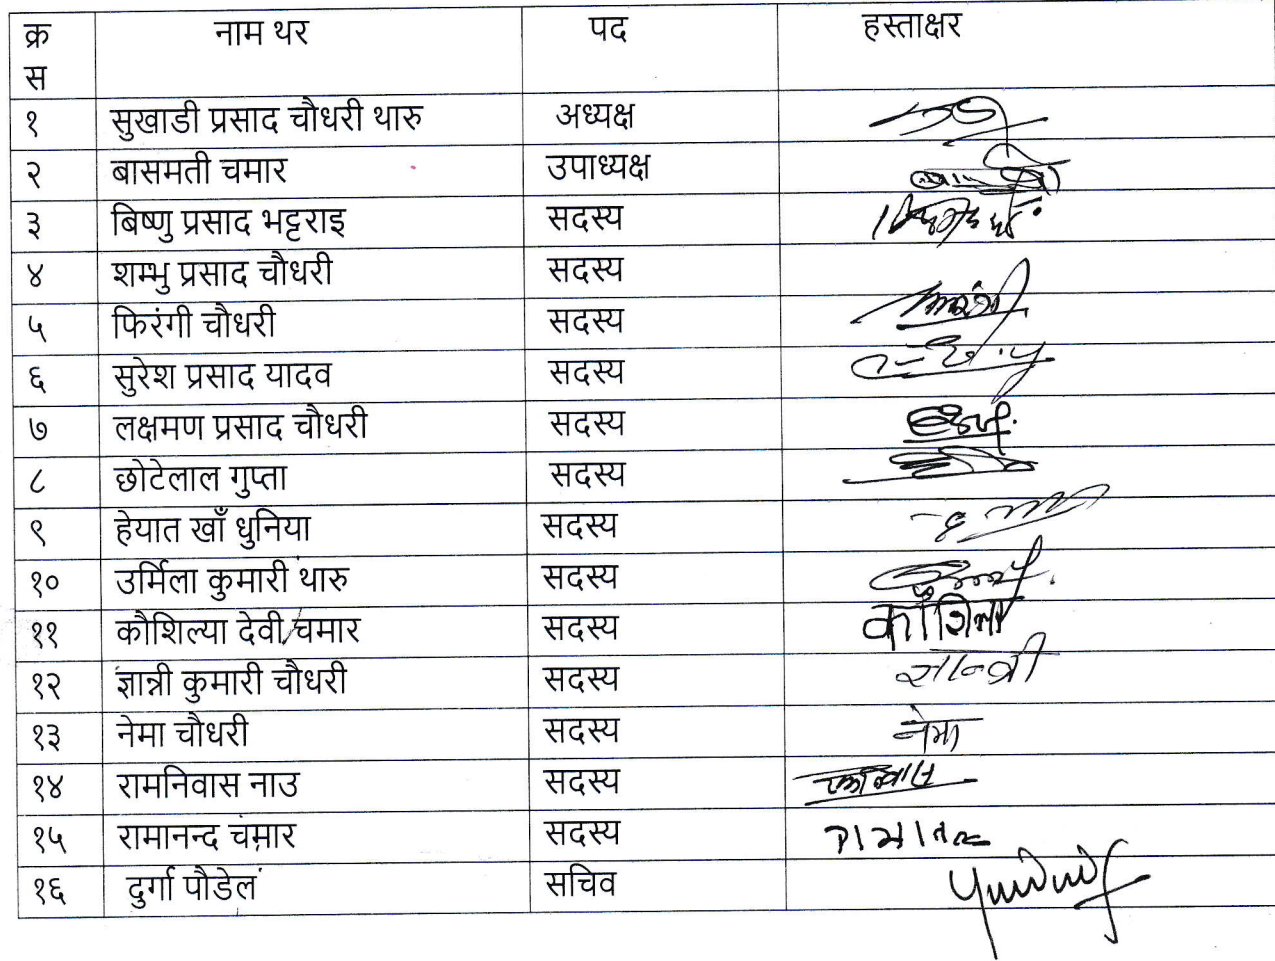 क्र स नाम थर पद हस्ताक्षर
१ सुखाडी प्रसाद चौधरी थारु अध्यक्ष
२ बासमती चमार उपाध्यक्ष
३ बिष्णु प्रसाद भट्टराइ सदस्य
४ शम्भु प्रसाद चौधरी सदस्य
५ फिरंगी चौधरी सदस्य
६ सुरेश प्रसाद यादव सदस्य
७ लक्षमण प्रसाद चौधरी सदस्य
८ छोटेलाल गुप्ता सदस्य
९ हेयात खाँ धुनिया सदस्य
१० उर्मिला कुमारी थारु सदस्य
११ कौशिल्या देवी चमार सदस्य
१२ ज्ञान्री कुमारी चौधरी सदस्य
१३ नेमा चौधरी सदस्य नेमा
१४ रामनिवास नाउ सदस्य
१५ रामानन्द चमार सदस्य
१६ दुर्गा पौडेल सचिव